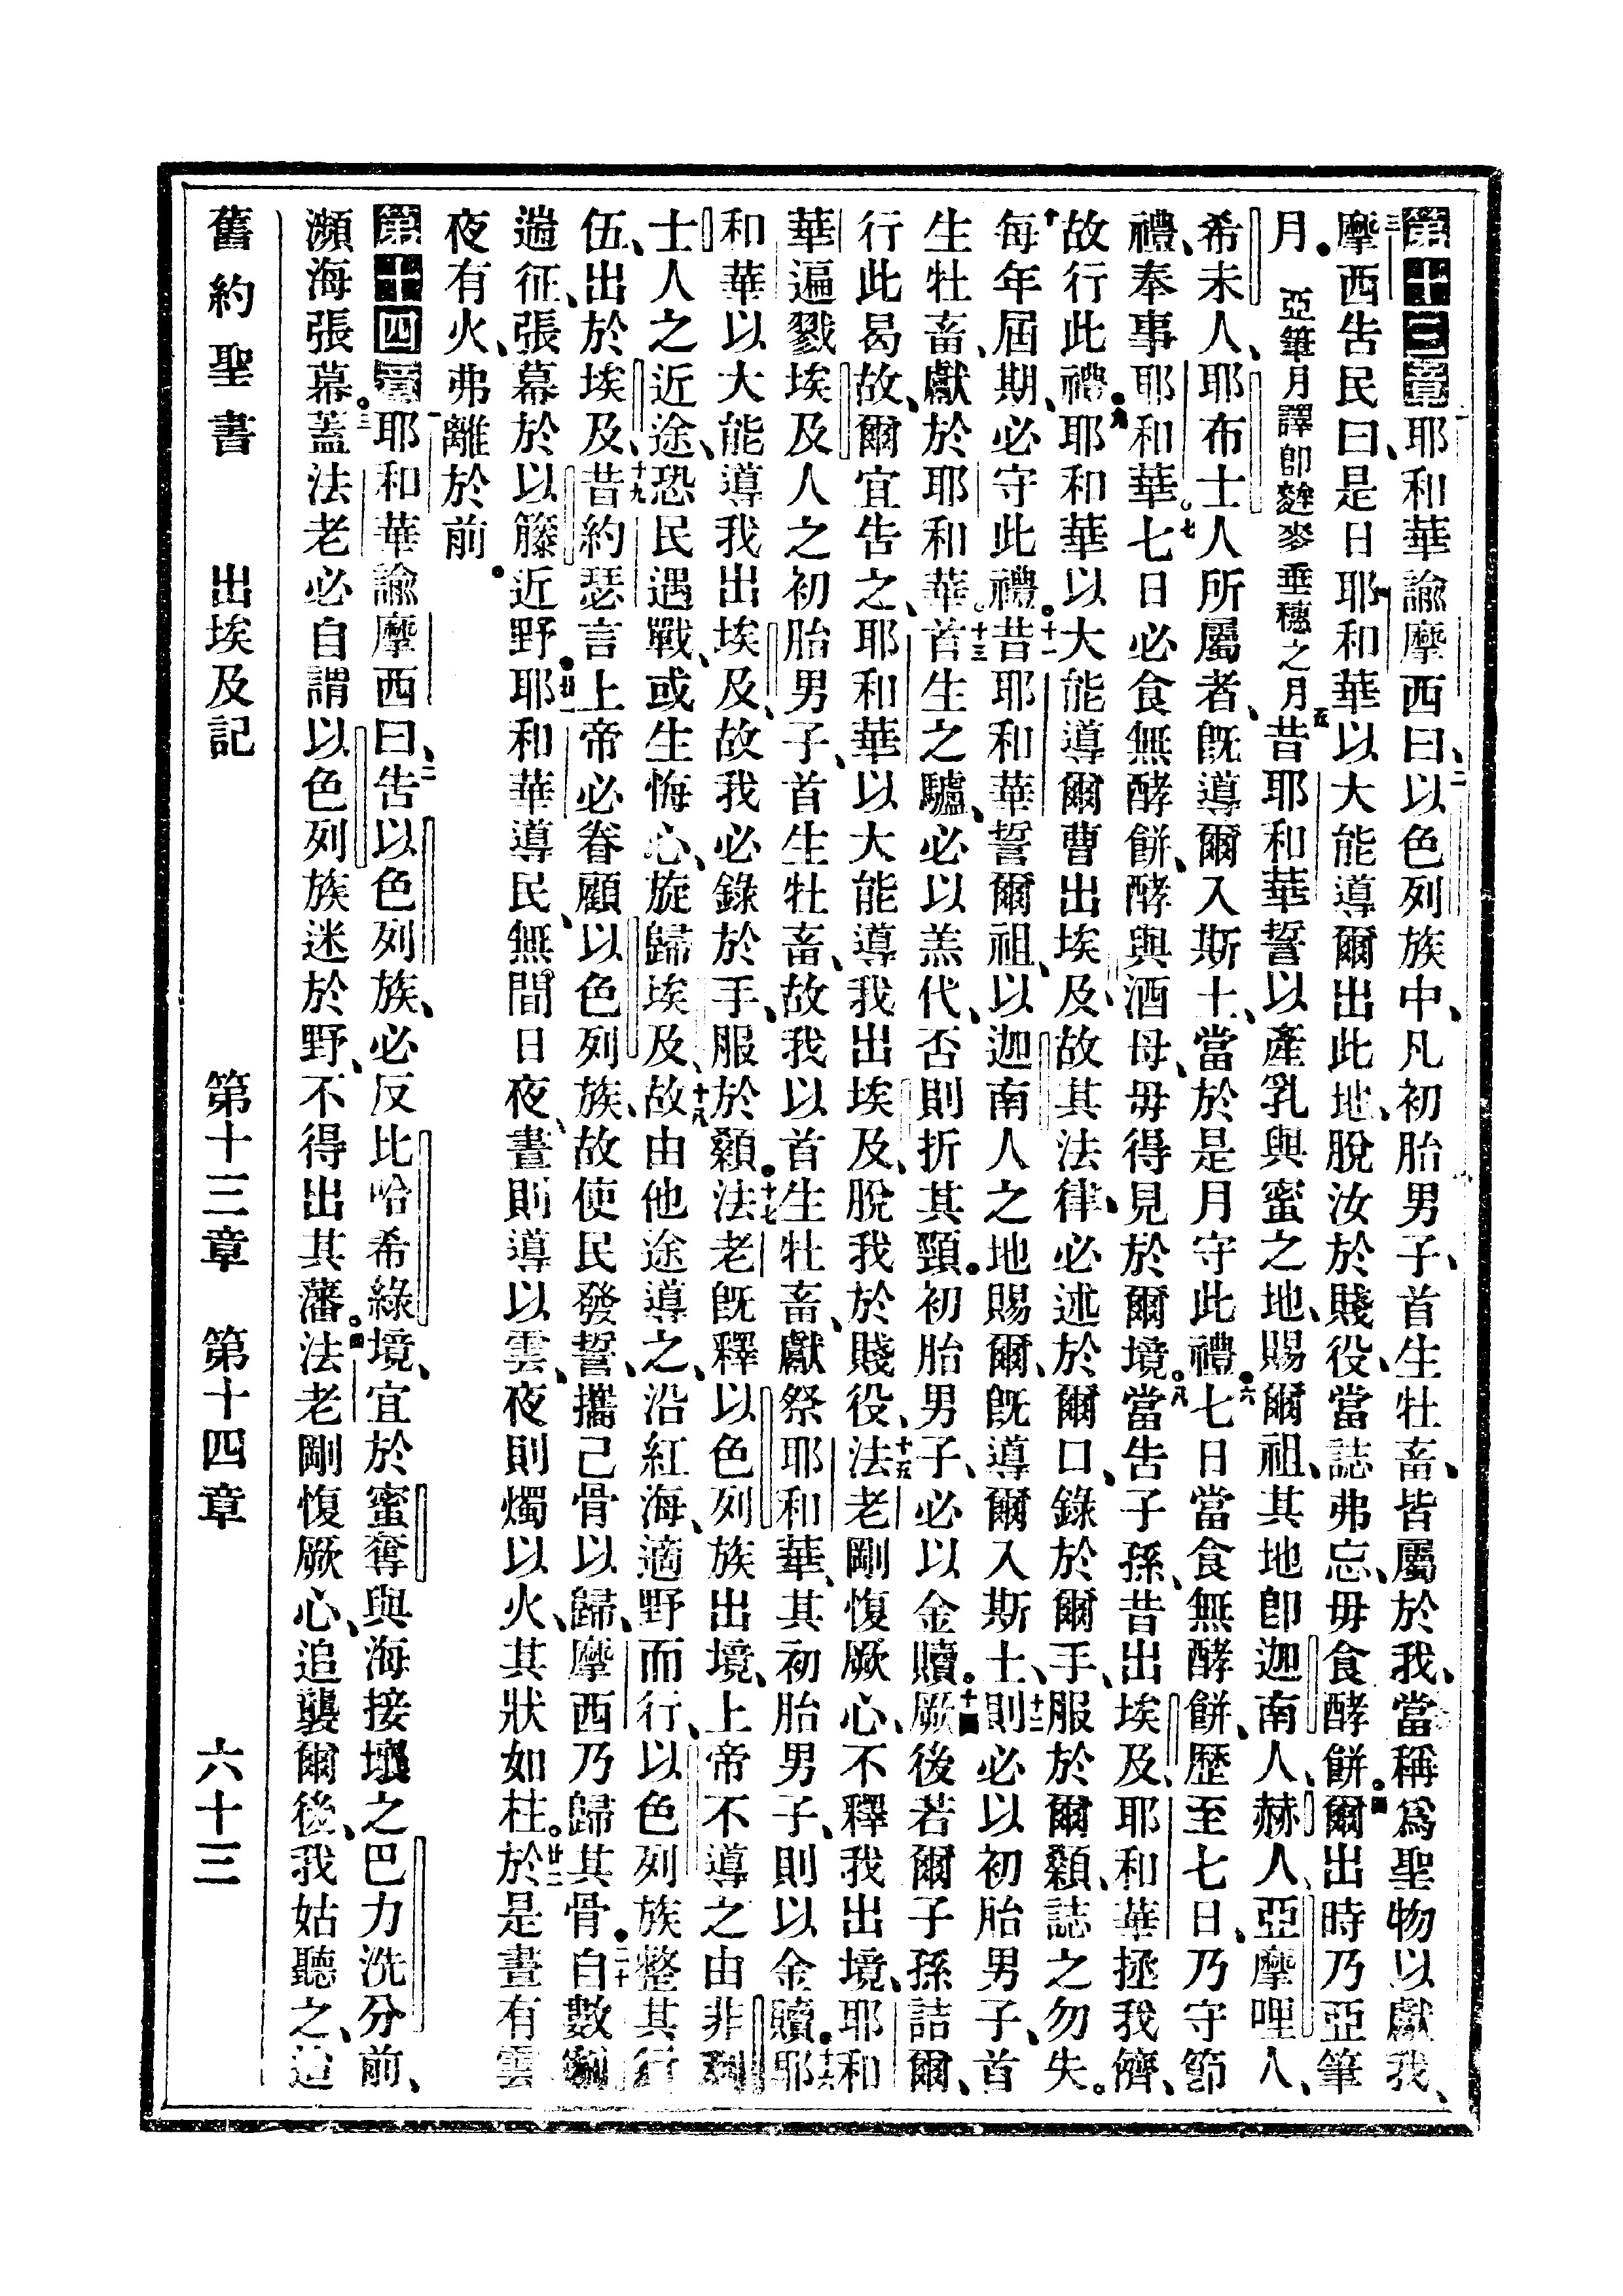 第十三章耶和華諭摩西曰、二以色列族中、凡初胎男子、首生牡畜、皆屬於我、當稱爲聖物以獻我、
三摩西告民曰、是日耶和華以大能導爾出此地、脫汝於賤役、當誌弗忘、毋食酵餅。四爾出時乃亞筆
月。亞筆月譯卽麰麥垂穗之月五昔耶和華誓以產乳與蜜之地、賜爾祖、其地卽迦南人、赫人、亞摩哩人、
希未人、耶布士人所屬者、旣導爾入斯土、當於是月守此禮。六七日當食無酵餅、歷至七日、乃守節
禮、奉事耶和華。七七日必食無酵餅、酵與酒母、毋得見於爾境。八當告子孫、昔出埃及、耶和華拯我儕、
故行此禮。九耶和華以大能導爾曹出埃及、故其法律、必述於爾口、錄於爾手、服於爾顙、誌之勿失。
十每年屆期、必守此禮。十一昔耶和華誓爾祖、以迦南人之地賜爾、旣導爾入斯土、十二則必以初胎男子、首
生牡畜、獻於耶和華。十三首生之驢、必以羔代、否則折其頸。初胎男子、必以金贖。十四厥後若爾子孫詰爾、
行此曷故、爾宜告之、耶和華以大能導我出埃及、脫我於賤役、十五法老剛愎厥心、不釋我出境、耶和
華遍戮埃及人之初胎男子、首生牡畜、故我以首生牡畜、獻祭耶和華、其初胎男子、則以金贖。十六耶
和華以大能導我出埃及、故我必錄於手、服於顙。十七法老旣釋以色列族出境、上帝不導之由非利
士人之近途、恐民遇戰、或生悔心、旋歸埃及、十八故由他途導之、沿紅海、適野而行、以色列族整其行
伍、出於埃及、十九昔約瑟言上帝必眷顧以色列族、故使民發誓、攜己骨以歸、摩西乃歸其骨。二十自數割
遄征、張幕於以籐近野。廿一耶和華導民、無間日夜、晝則導以雲、夜則燭以火、其狀如柱。廿二於是晝有雲
夜有火、弗離於前。
第十四章一耶和華諭摩西曰、二告以色列族、必反比哈希綠境、宜於蜜奪與海接壤之巴力洗分前、
瀕海張幕。三蓋法老必自謂以色列族迷於野、不得出其藩。四法老剛愎厥心、追襲爾後、我姑聽之、迨
舊約聖書　出埃及記　第十三章　第十四章　六十三